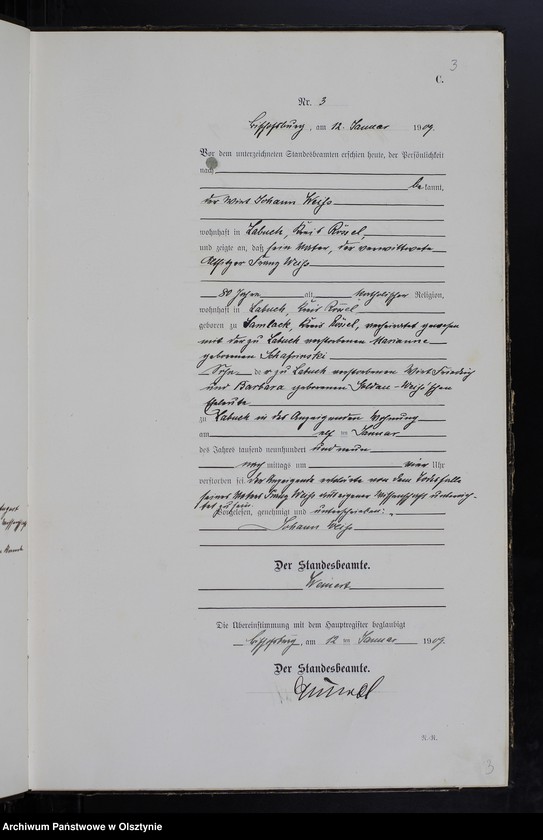 3
C.
Nr. 3
Bischofsburg, am 12. Januar 1909.
Vor dem unterzeichneten Standesbeamten erschien heute, der Persönlichkeit
nach
be kannt,
der Wirt Johann Weiss
wohnhaft in Labuch, Kreis Rössel,
und zeigte an, daß sein Vater, der verwittwete
Altsitzer Franz Weiss
80 Jahre alt, katholischer Religion,
wohnhaft in Labuch, Kreis Rössel
geboren zu Samlack, Kreis Rössel, verheiratet gewesen
mit der zu Labuch verstorbenen Marianne
geborenen Schafrinski
Sohn der zu Labuch verstorbenen Wirt Friedrich
und Barbara geborenen Goldau-Weiss'schen
Eheleute
zu Labuch in des Anzeigenden Wohnung
am elf ten Januar
des Jahres tausend neunhundert und neun
nach mittags um vier Uhr
verstorben sei. Der Anzeigende erklärte von dem Todesfalle
seines Vaters Franz Weiss aus eigener Wissenschaft unterrich-
tet zu sein.
Vorgelesen, genehmigt und unterschrieben:
Johann Weiss
Der Standesbeamte.
Weinert
Die Übereinstimmung mit dem Hauptregister beglaubigt
Bischofsburg, am 12 ten Januar 1909.
Der Standesbeamte.
R.-R.
3
Archiwum Państwowe w Olsztynie